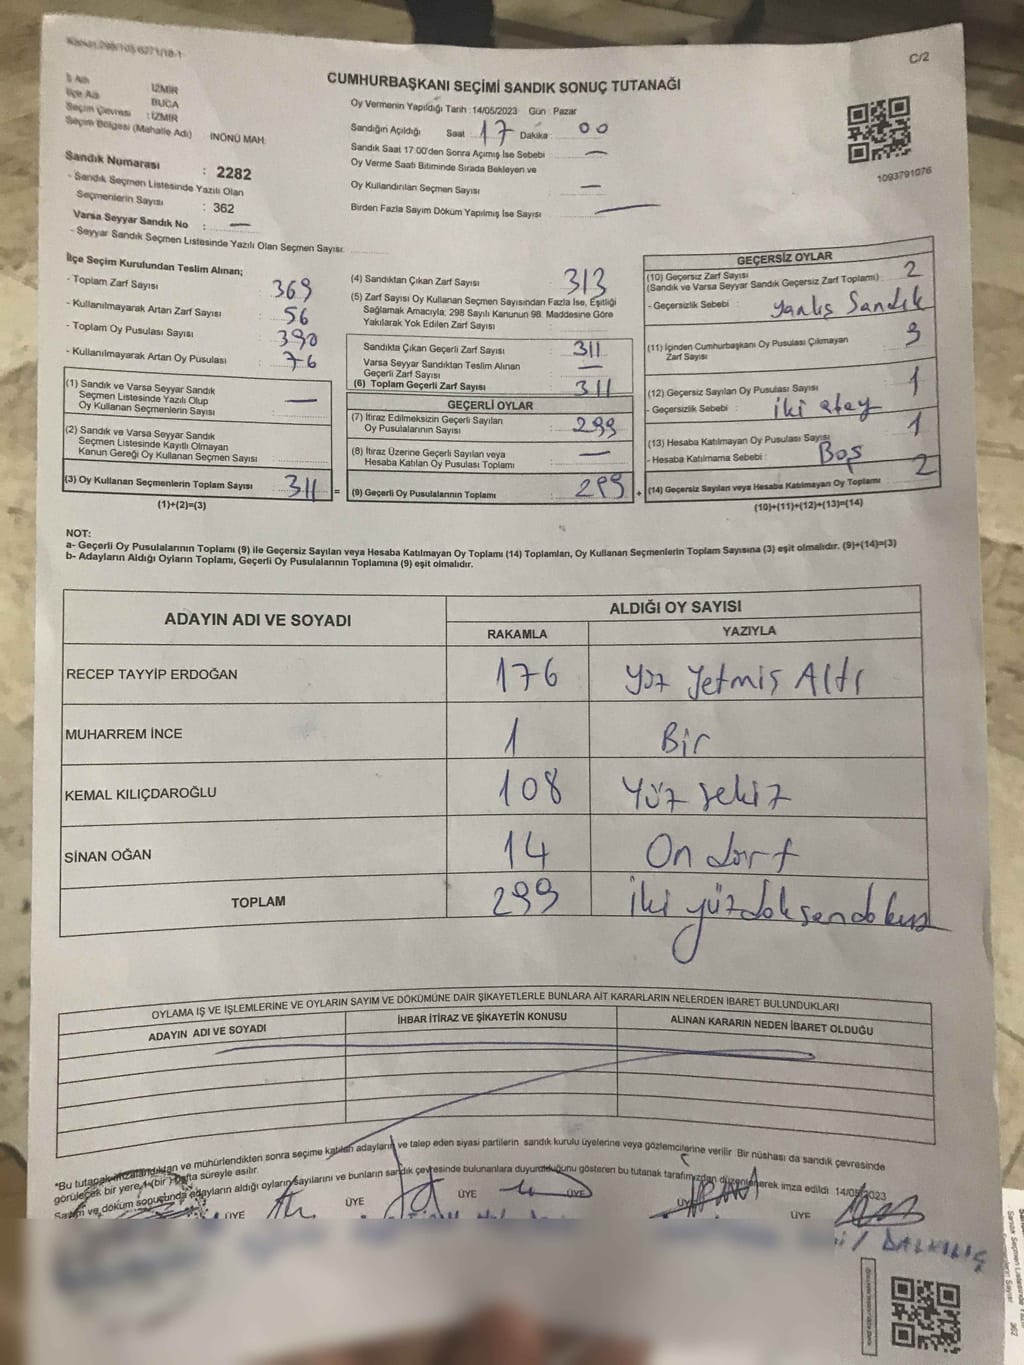 C/2
CUMHURBAŞKANI SEÇİMİ SANDIK SONUÇ TUTANAĞI
İl Adı İZMİR
İlçe Adı BUCA
Seçim Çevresi : İZMİR
Seçim Bölgesi (Mahalle Adı) İNÖNÜ MAH.
Sandık Numarası : 2282
- Sandık Seçmen Listesinde Yazılı Olan
Seçmenlerin Sayısı : 362
Varsa Seyyar Sandık No : —
- Seyyar Sandık Seçmen Listesinde Yazılı Olan Seçmen Sayısı:
Oy Vermenin Yapıldığı Tarih : 14/05/2023 Gün : Pazar
Sandığın Açıldığı Saat 17 Dakika 00
Sandık Saat 17:00'den Sonra Açımış İse Sebebi —
Oy Verme Saati Bitiminde Sırada Bekleyen ve
Oy Kullandırılan Seçmen Sayısı —
Birden Fazla Sayım Döküm Yapılmış İse Sayısı —
1093791076
İlçe Seçim Kurulundan Teslim Alınan;
- Toplam Zarf Sayısı : 369
- Kullanılmayarak Artan Zarf Sayısı : 56
- Toplam Oy Pusulası Sayısı : 390
- Kullanılmayarak Artan Oy Pusulası : 76
(1) Sandık ve Varsa Seyyar Sandık
Seçmen Listesinde Yazılı Olup
Oy Kullanan Seçmenlerin Sayısı —
(2) Sandık ve Varsa Seyyar Sandık
Seçmen Listesinde Kayıtlı Olmayan
Kanun Gereği Oy Kullanan Seçmen Sayısı
(3) Oy Kullanan Seçmenlerin Toplam Sayısı 311 =
(1)+(2)=(3)
(4) Sandıktan Çıkan Zarf Sayısı 313
(5) Zarf Sayısı Oy Kullanan Seçmen Sayısından Fazla İse, Eşitliği
Sağlamak Amacıyla, 298 Sayılı Kanunun 98. Maddesine Göre
Yakılarak Yok Edilen Zarf Sayısı
Sandıkta Çıkan Geçerli Zarf Sayısı 311
Varsa Seyyar Sandıktan Teslim Alınan
Geçerli Zarf Sayısı —
(6) Toplam Geçerli Zarf Sayısı 311
GEÇERLİ OYLAR
(7) İtiraz Edilmeksizin Geçerli Sayılan
Oy Pusulalarının Sayısı 299
(8) İtiraz Üzerine Geçerli Sayılan veya
Hesaba Katılan Oy Pusulası Toplamı —
(9) Geçerli Oy Pusulalarının Toplamı 299 +
GEÇERSİZ OYLAR
(10) Geçersiz Zarf Sayısı 2
(Sandık ve Varsa Seyyar Sandık Geçersiz Zarf Toplamı)
- Geçersizlik Sebebi : yanlış Sandık
(11) İçinden Cumhurbaşkanı Oy Pusulası Çıkmayan
Zarf Sayısı 9
(12) Geçersiz Sayılan Oy Pusulası Sayısı 1
- Geçersizlik Sebebi : iki atay
(13) Hesaba Katılmayan Oy Pusulası Sayısı 1
- Hesaba Katılmama Sebebi : Boş
(14) Geçersiz Sayılan veya Hesaba Katılmayan Oy Toplamı 2
(10)+(11)+(12)+(13)=(14)
NOT:
a- Geçerli Oy Pusulalarının Toplamı (9) ile Geçersiz Sayılan veya Hesaba Katılmayan Oy Toplamı (14) Toplamları, Oy Kullanan Seçmenlerin Toplam Sayısına (3) eşit olmalıdır. (9)+(14)=(3)
b- Adayların Aldığı Oyların Toplamı, Geçerli Oy Pusulalarının Toplamına (9) eşit olmalıdır.
ADAYIN ADI VE SOYADI ALDIĞI OY SAYISI
RAKAMLA YAZIYLA
RECEP TAYYİP ERDOĞAN 176 Yüz Yetmiş Altı
MUHARREM İNCE 1 Bir
KEMAL KILIÇDAROĞLU 108 Yüz sekiz
SİNAN OĞAN 14 On dört
TOPLAM 299 İki yüzdoksandokuz
OYLAMA İŞ VE İŞLEMLERİNE VE OYLARIN SAYIM VE DÖKÜMÜNE DAİR ŞİKAYETLERLE BUNLARA AİT KARARLARIN NELERDEN İBARET BULUNDUKLARI
ADAYIN ADI VE SOYADI İHBAR İTİRAZ VE ŞİKAYETİN KONUSU ALINAN KARARIN NEDEN İBARET OLDUĞU
*Bu tutanak imzalandıktan ve mühürlendikten sonra seçime katılan adayların ve talep eden siyasi partilerin sandık kurulu üyelerine veya gözlemcilerine verilir Bir nüshası da sandık çevresinde
görülecek bir yere 1 (bir) hafta süreyle asılır.
Sayım ve döküm sonucunda adayların aldığı oyların sayılarını ve bunların sandık çevresinde bulunanlara duyurulduğunu gösteren bu tutanak tarafımızdan düzenlenerek imza edildi 14/05/2023
ÜYE ÜYE ÜYE ÜYE ÜYE ÜYE
DALKILIÇ